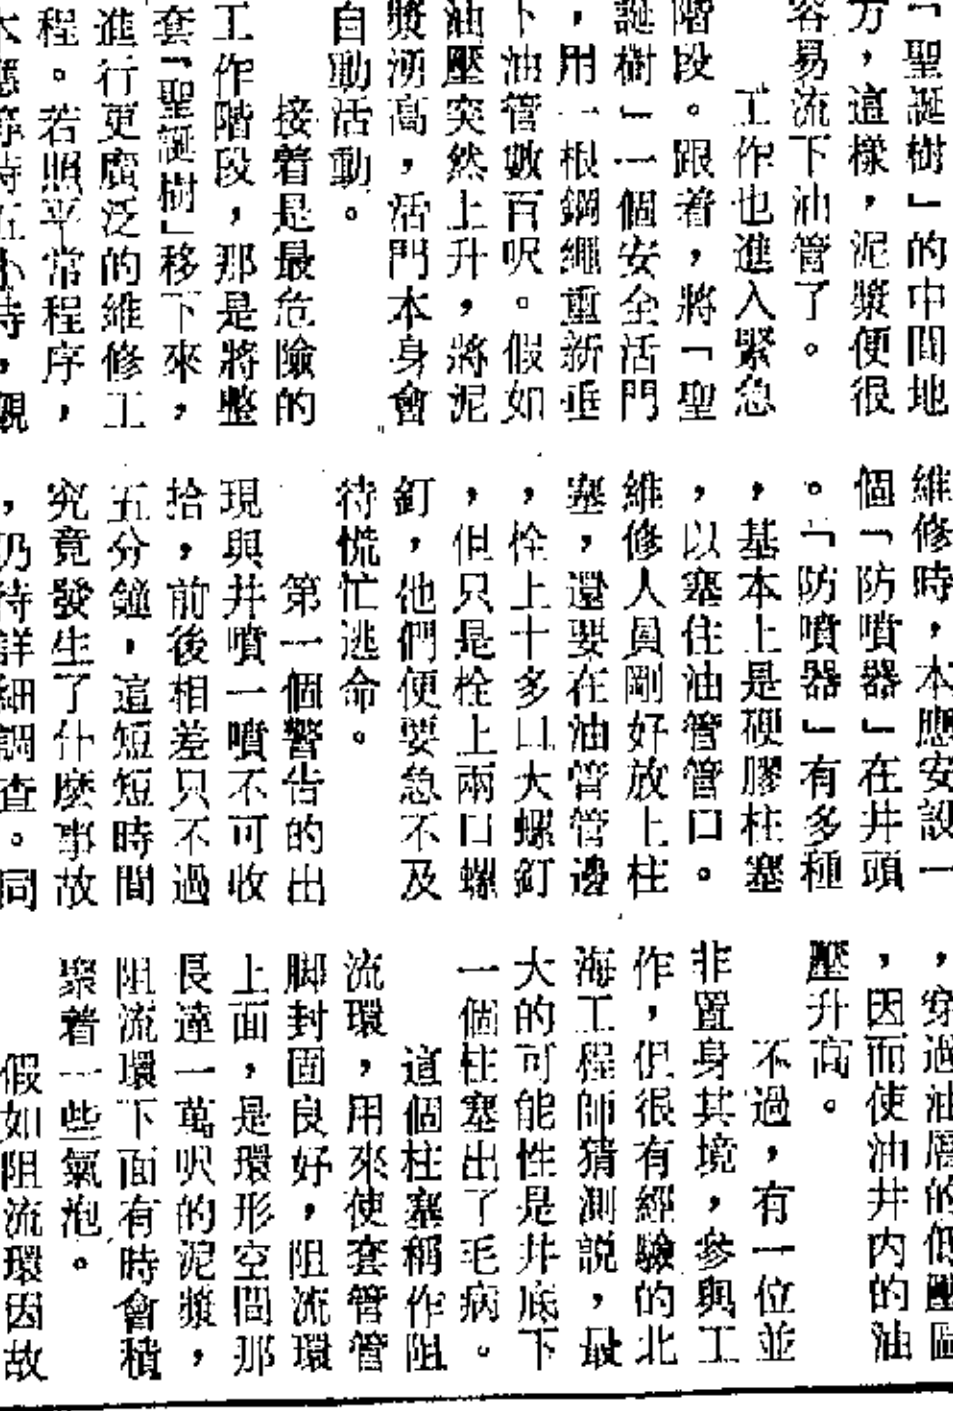 「聖誕樹」的中間地
方，這樣，泥漿便很
容易流下油管了。
工作也進入緊急
階段。跟着，將「聖
誕樹」一個安全活門
，用一根鋼繩重新垂
下油管數百呎。假如
油壓突然上升，將泥
漿湧高，活門本身會
自動活動。
接着是最危險的
工作階段，那是將整
套「聖誕樹」移下來，
進行更廣泛的維修工
程。若照平常程序，
維修時，本應安設一
個「防噴器」在井頭
。「防噴器」有多種
，基本上是硬膠柱塞
，以塞住油管管口。
維修人員剛好放上柱
塞，還要在油管管邊
，栓上十多口大螺釘
，但只是栓上兩口螺
釘，他們便要急不及
待慌忙逃命。
第一個警告的出
現與井噴一噴不可收
拾，前後相差只不過
五分鐘，這短短時間
究竟發生了什麽事故
，仍待詳細調查。同
，穿過油層的低壓區
，因而使油井內的油
壓升高。
不過，有一位並
非置身其境，參與工
作，但很有經驗的北
海工程師猜測説，最
大的可能性是井底下
一個柱塞出了毛病。
這個柱塞稱作阻
流環，用來使套管管
脚封固良好，阻流環
上面，是環形空間那
長達一萬呎的泥漿，
阻流環下面有時會積
聚着一些氣泡。
假如阻流環因故